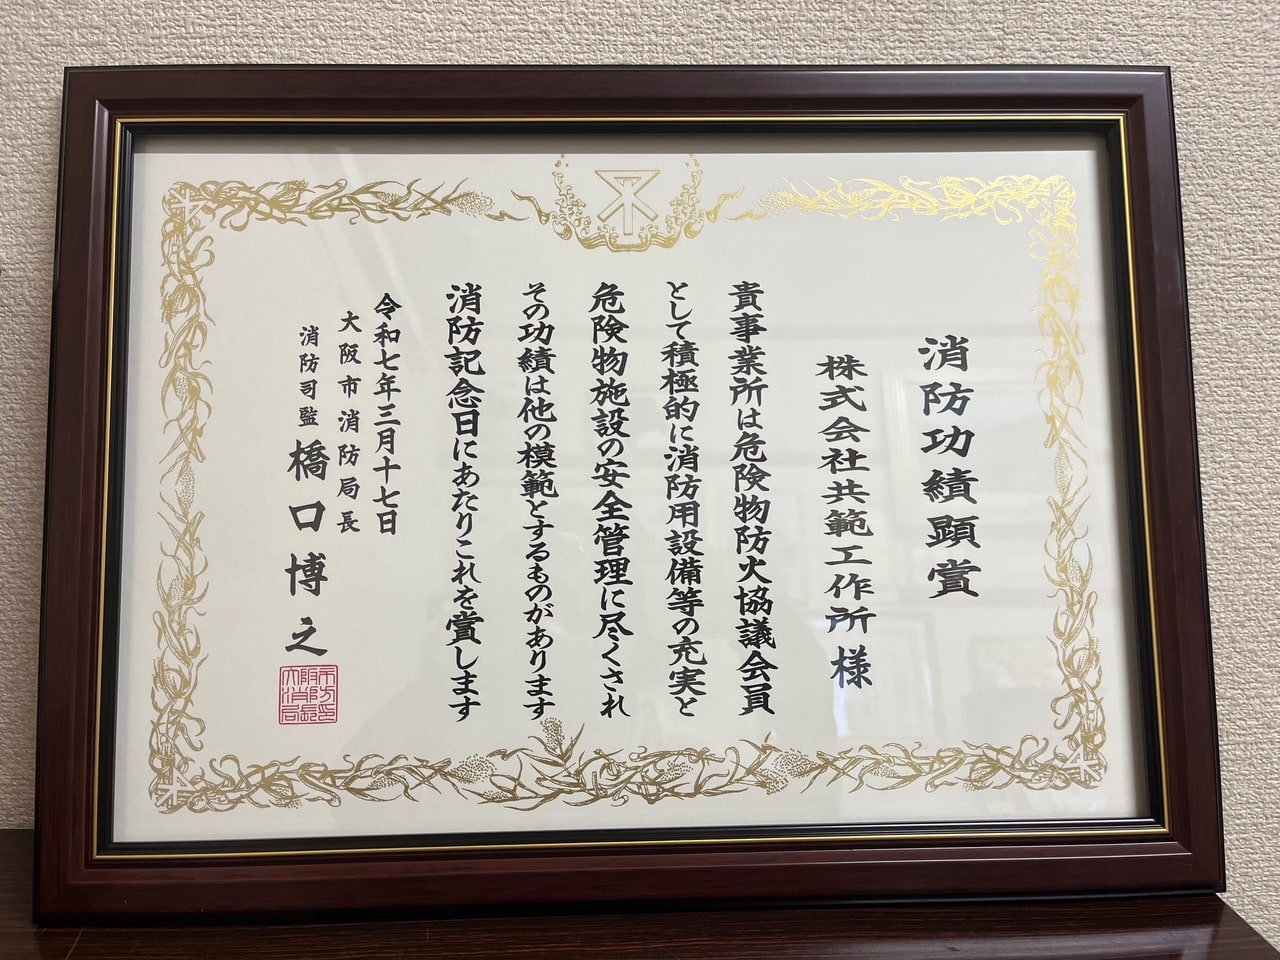 消防功績顕賞
株式会社共範工作所様
貴事業所は危険物防火協議会員
として積極的に消防用設備等の充実と
危険物施設の安全管理に尽くされ
その功績は他の模範とするものがあります
消防記念日にあたりこれを賞します
令和七年三月十七日
大阪市消防局長
消防司監 橋口博之
大阪市消防局長印